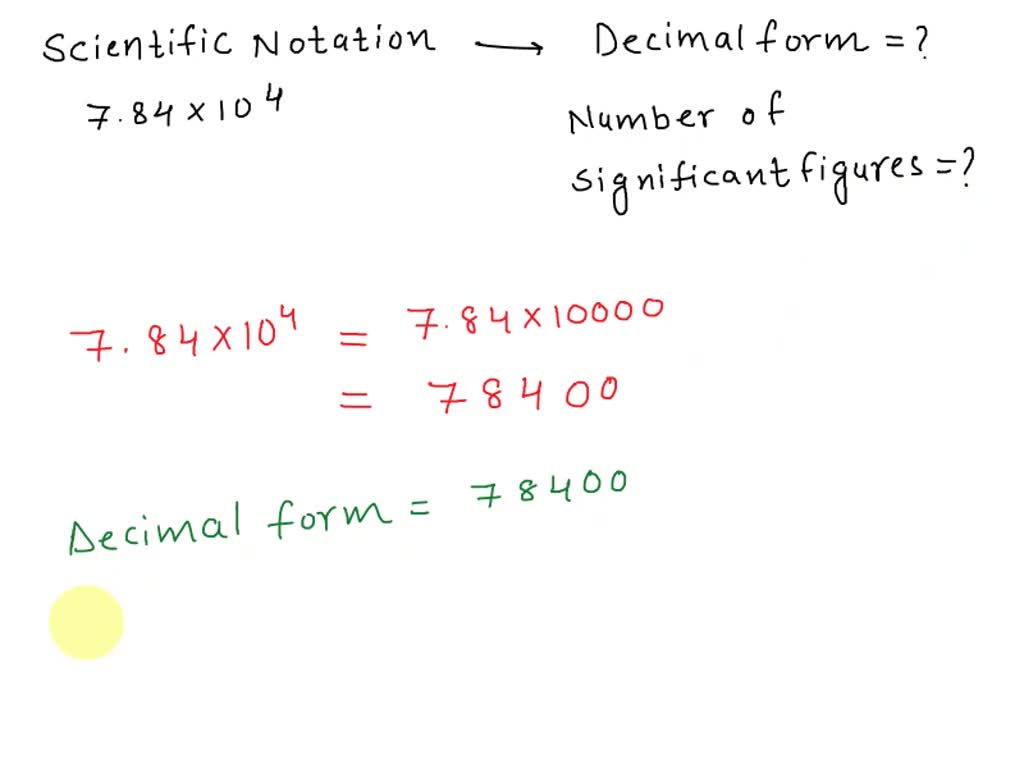 Scientific Notation → Decimal form = ?
7.84 × 10⁴
Number of
significant figures = ?
7.84 × 10⁴ = 7.84 × 10000
= 78400
Decimal form = 78400